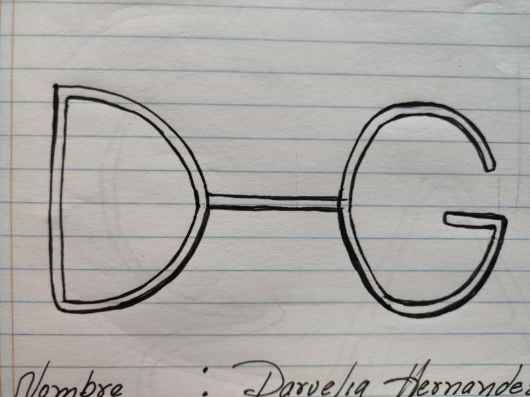 D-G
Nombre : Darvelia Hernandez